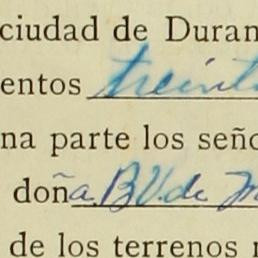 ciudad de Duran
entos treint
na parte los seño
doña. B V. de M
de los terrenos